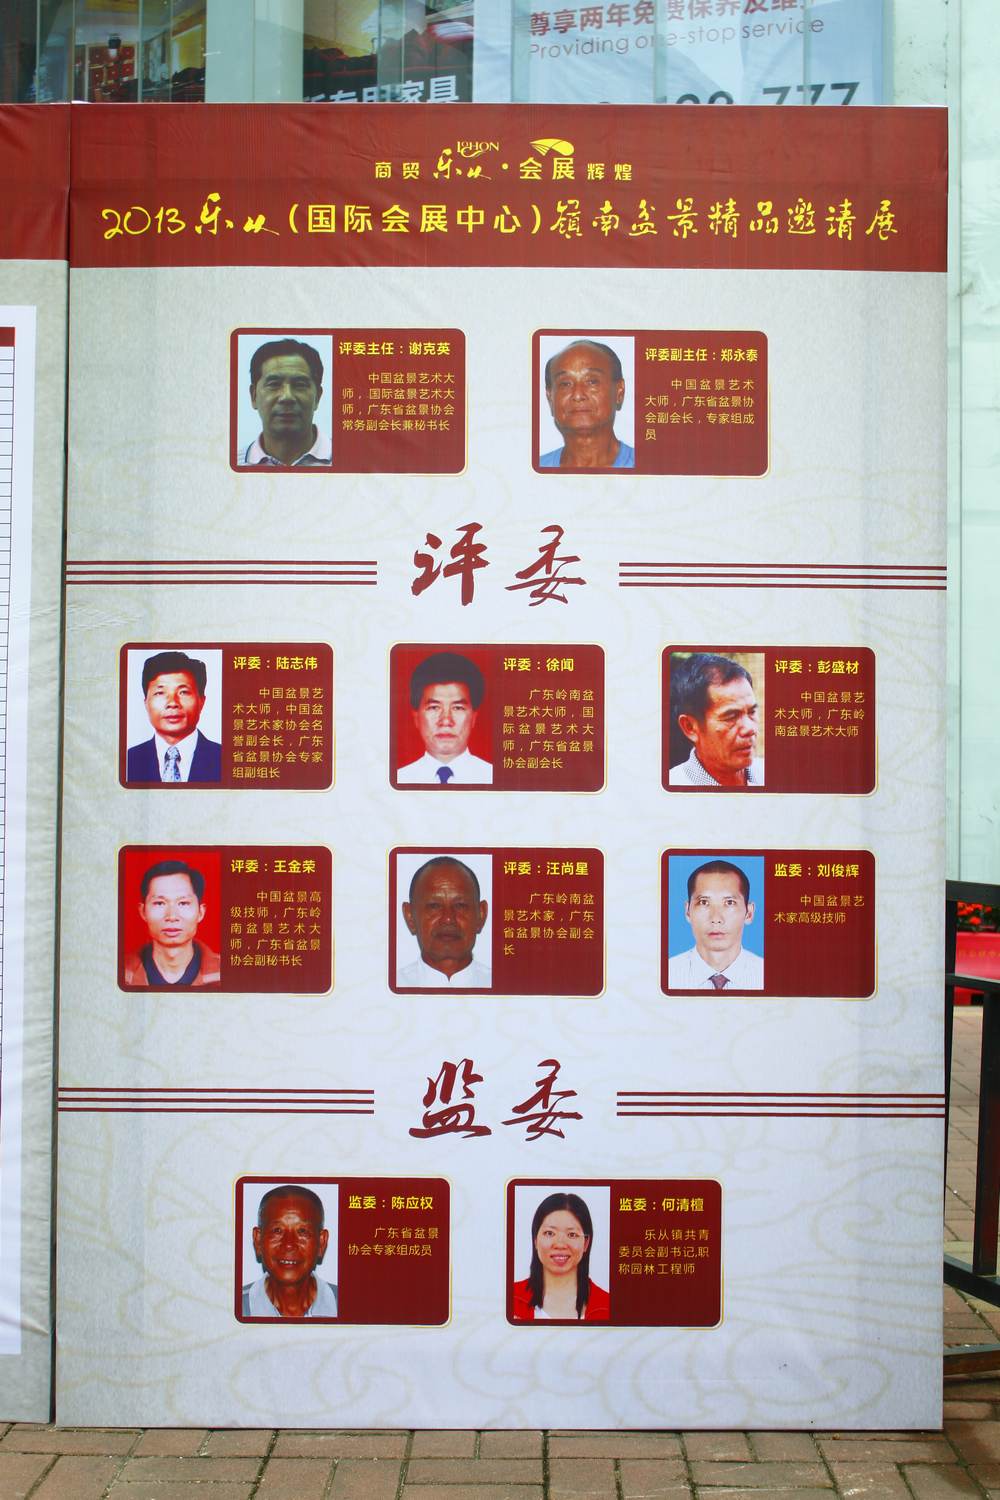 尊享两年免费保养及维
Providing one-stop service
专用家具
777
LeHON
商贸乐从·会展辉煌
2013乐从(国际会展中心)嶺南盆景精品邀请展
评委主任：谢克英
中国盆景艺术大
师，国际盆景艺术大
师，广东省盆景协会
常务副会长兼秘书长
评委副主任：郑永泰
中国盆景艺术
大师，广东省盆景协
会副会长，专家组成
员
评委
评委：陆志伟
中国盆景艺
术大师，中国盆
景艺术家协会名
誉副会长，广东
省盆景协会专家
组副组长
评委：徐闻
广东岭南盆
景艺术大师，国
际盆景艺术大
师，广东省盆景
协会副会长
评委：彭盛材
中国盆景艺
术大师，广东岭
南盆景艺术大师
评委：王金荣
中国盆景高
级技师，广东岭
南盆景艺术大
师，广东省盆景
协会副秘书长
评委：汪尚星
广东岭南盆
景艺术家，广东
省盆景协会副会
长
监委：刘俊辉
中国盆景艺
术家高级技师
监委
监委：陈应权
广东省盆景
协会专家组成员
监委：何清檀
乐从镇共青
委员会副书记,职
称园林工程师